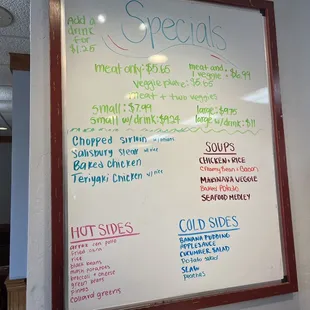 Add a
drink
for
$1.25
Specials
meat only: $5.65
meat and
1 veggie $6.99
veggie plate: $5.65
meat + two veggies
small: $7.99
large: $9.75
small w/drink: $9.24
large w/drink: $11
Chopped Sirloin w/onions
Salisbury Steak w/rice
Baked Chicken
Teriyaki Chicken w/rice
SOUPS
CHICKEN + RICE
Creamy Bean + Bacon
VEGGIE
Baked Potato
SEAFOOD MEDLEY
HOT SIDES
fried corn
rice
black beans
mash potatoes
broccoli + cheese
green beans
collard greens
COLD SIDES
BANANA PUDDING
APPLESAUCE
CUCUMBER SALAD
Potato salad
SLAW
peaches